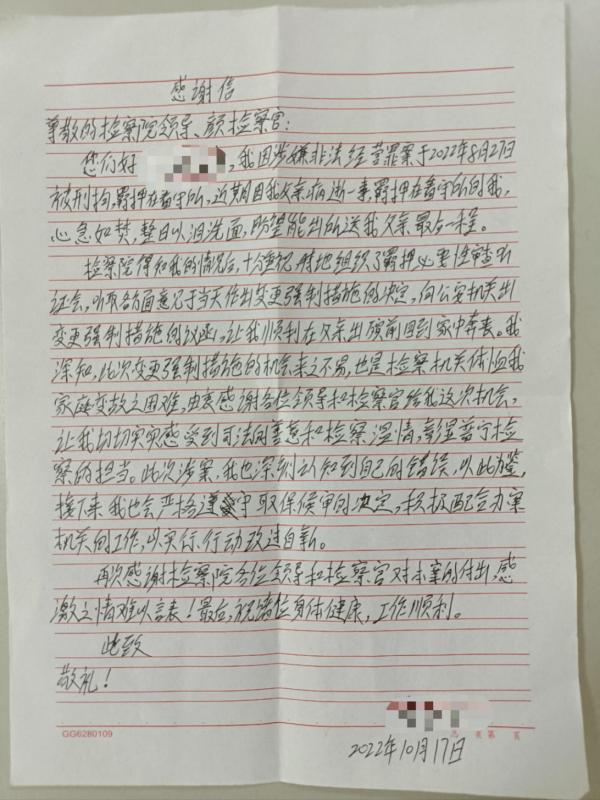 感谢信
尊敬的检察院领导、颜检察官:
您们好 ,我因涉嫌非法经营罪案于2022年8月27日
被刑拘,羁押在看守所,近期因我父亲病逝一事,羁押在看守所的我,
心急如焚,整日以泪洗面,盼望能出所送我父亲最后一程。
检察院得知我的情况后,十分重视, 地组织了羁押必要性审查听
证会,听取各方面意见于当天作出变更强制措施的决定,向公安机关出
变更强制措施的议函,让我顺利在父亲出殡前回到家中奔丧。我
深知,此次变更强制措施的机会来之不易,也是检察机关体恤我
家庭变故之困难,由衷感谢各位领导和检察官给我这次机会,
让我切切实实感受到司法的善意和检察温情,彰显普宁检
察的担当。此次涉案,我也深刻认知到自己的错误,以此为鉴,
接下来我也会严格遵守取保候审的决定,积极配合办案
机关的工作,以实际行动改过自新。
再次感谢检察院各位领导和检察官对本案的付出,感
激之情难以言表!最后,祝诸位身体健康,工作顺利。
此致
敬礼!
GG6280109 页第 页
2022年10月17日